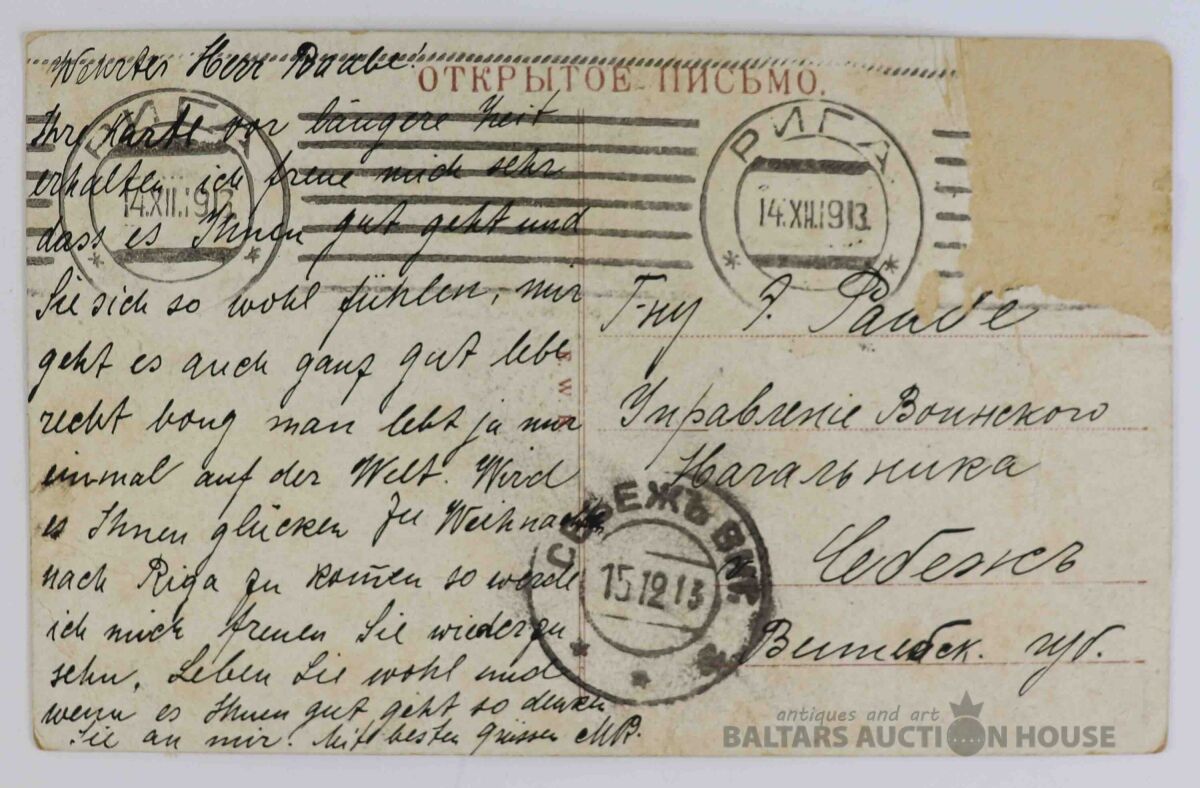 ОТКРЫТОЕ ПИСЬМО.
Wehrter Herr Raabe!
Ihre Karte vor längere Zeit
erhalten ich freue mich sehr
dass es Ihnen gut geht und
Sie sich so wohl fühlen, mir
geht es auch ganz gut lebe
recht man lebt ja nur
einmal auf der Welt. Wird
es Ihnen glücken zu Weihnachten
nach Riga zu kom̄en so werde
ich mich freuen Sie wieder zu
sehn. Leben Sie wohl und
wenn es Ihnen gut geht so denken
Sie an mir. Mit besten Grüssen MR.
РИГА
14.XII.1913
РИГА
14.XII.1913
Г-ну Э. Раабе
Управленіе Воинскаго
Начальника
Себежъ
Витебск. губ.
СЕБЕЖЪ ВИТ.
15 12 13
antiques and art
BALTARS AUCTION HOUSE